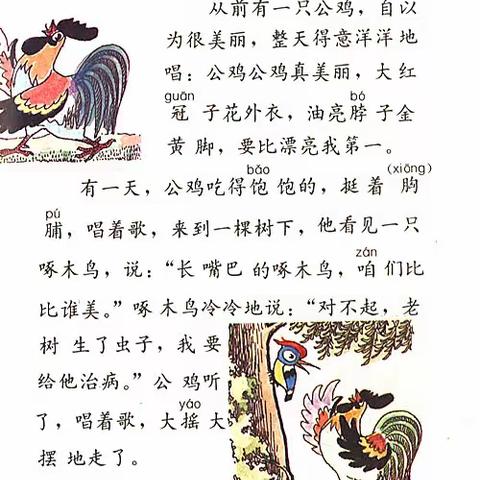 从前有一只公鸡，自以
为很美丽，整天得意洋洋地
唱：公鸡公鸡真美丽，大红
guān bó
冠子花外衣，油亮脖子金
黄脚，要比漂亮我第一。
bǎo (xiōng)
有一天，公鸡吃得饱饱的，挺着胸
pú
脯，唱着歌，来到一棵树下，他看见一只
zán
啄木鸟，说：“长嘴巴的啄木鸟，咱们比
比谁美。”啄木鸟冷冷地说：“对不起，老
树生了虫子，我要
给他治病。”公鸡听
yáo
了，唱着歌，大摇大
摆地走了。